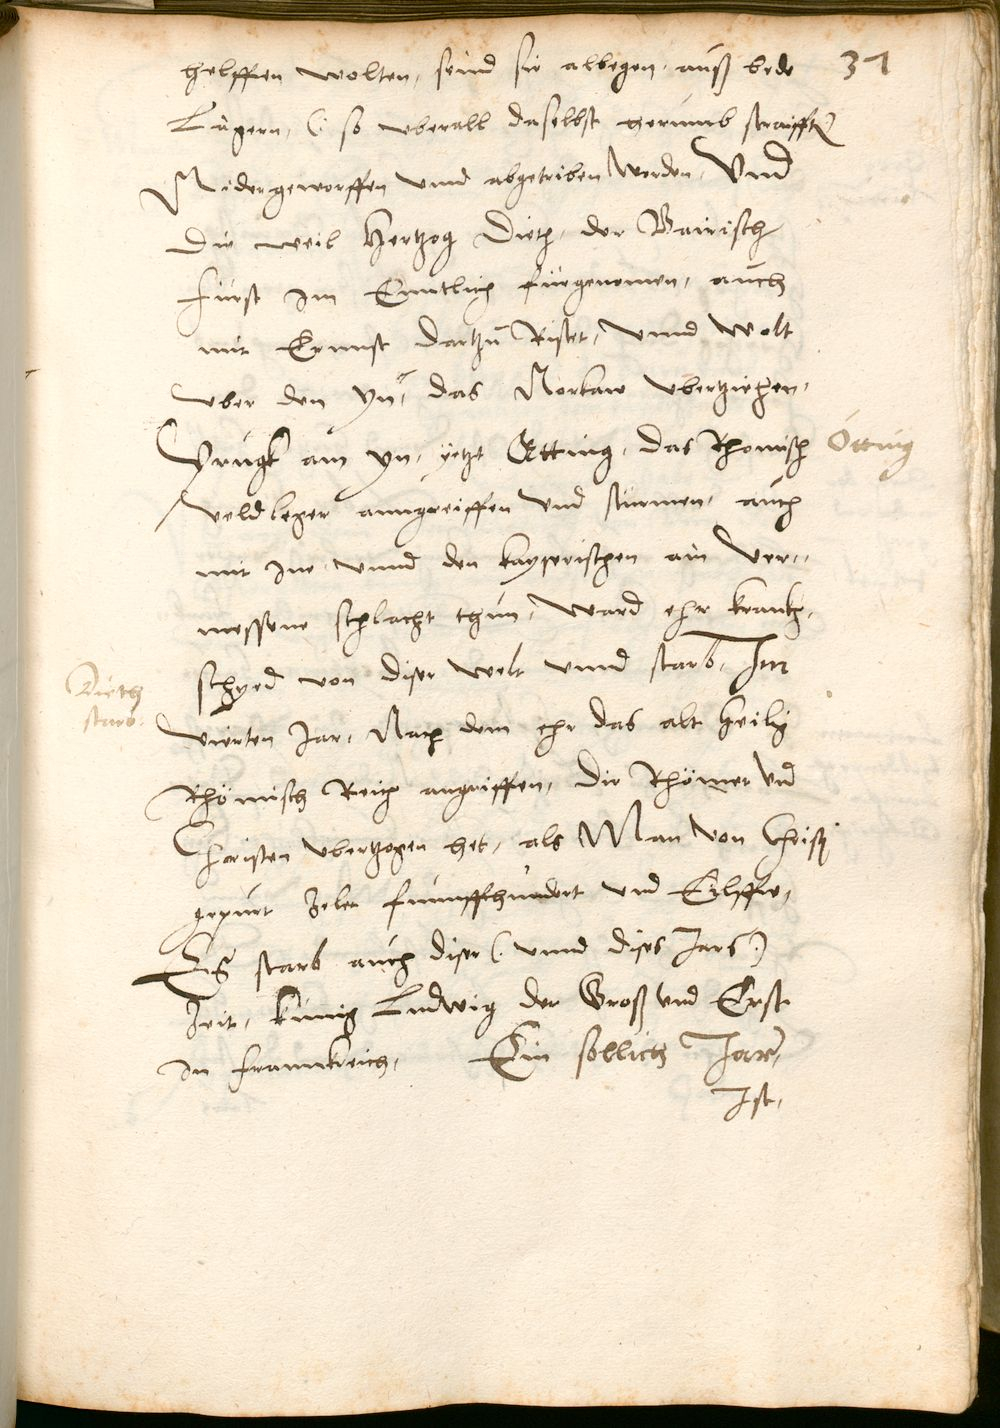 31
helffen wolten, seind sie allwegen, auß bede
Lägern, (: so uberall daselbst herumb straifft)
Nidergeworffen unnd abgetriben worden, Und
Die weil Hertzog Dieth, der Bairisch
Fürst im Enntlich fürgenomen, auch
mit Ernnst dartzu Ristet, unnd wolt
uber den yn, das Norkaw ubertziehen,
Prugk am yn, yetzt Ötting, das Rhomisch
Ötting
veldleger anngreiffen und stürmen, auch
mit Ine unnd den kayserischen ain ver-
messene schlacht thun, Ward ehr krankh,
schyed von diser welt unnd starb, Im
Dieth
starb.
vierten Jar, Nach dem ehr das alt heilig
Rhömisch Reich angriffen, die Rhömer und
Christen ubertzogen het, als Man von Christi
gepurt zelet funnffhundert und Eylffe,
Es starb auch diser (: unnd dises Jars :)
Zeit, künig Ludwig der Groß und Erst
in Frannkreich, Ein sollich Jar,
Ist,